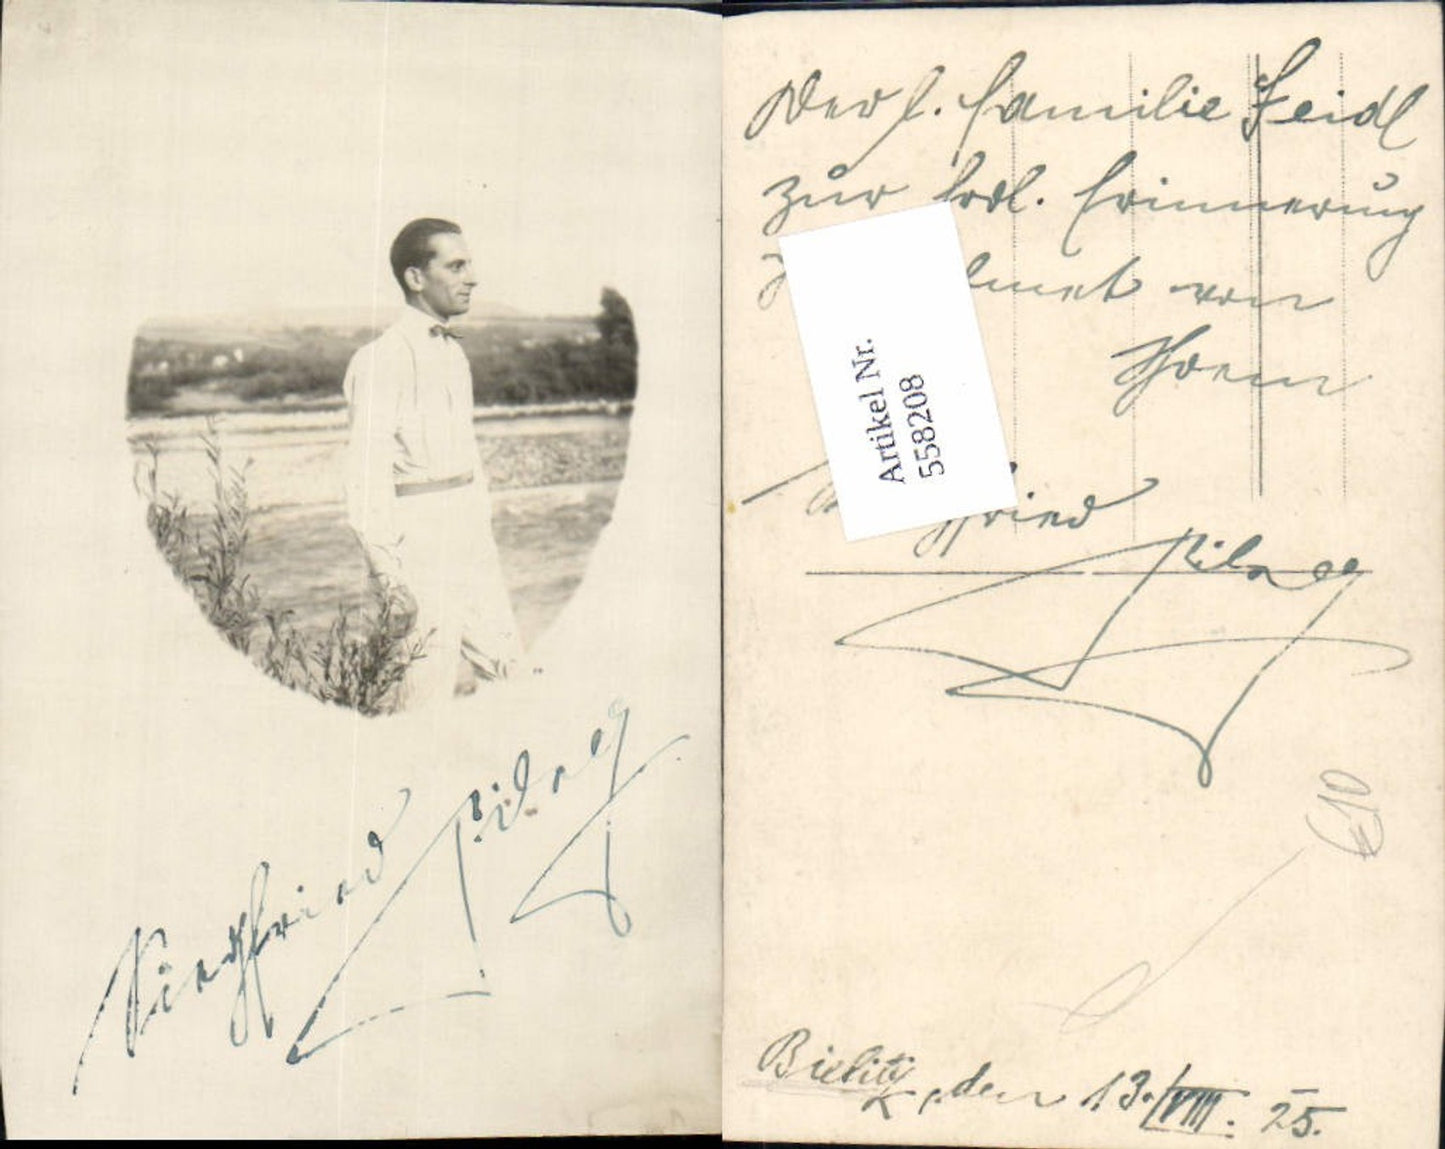 Siegfried Pilny
Der l. Familie Zeidl
zur frdl. Erinnerung
von
Ihrem
Siegfried
Pilny
Artikel Nr.
558208
€10
Bielitz, den 13./VIII. 25.